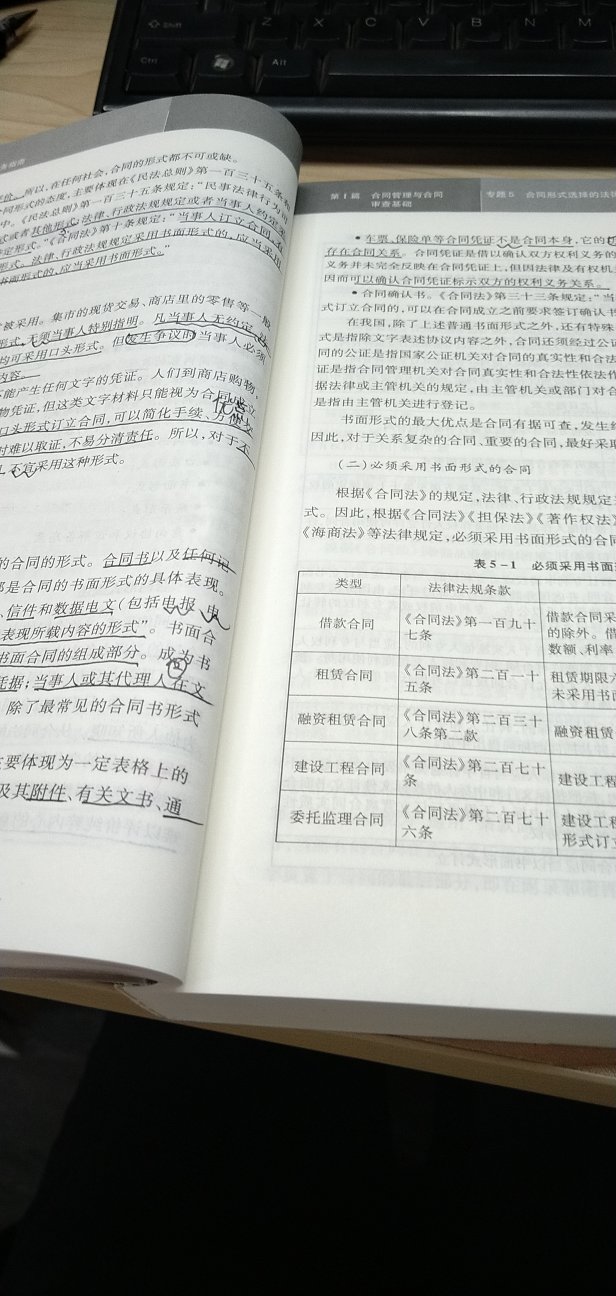 Shift
Z
X
C
V
B
N
M
Ctrl
Alt
务指南
价。所以,在任何社会,合同的形式都不可或缺。
同形式的态度,主要体现在《民法总则》第一百三十五条和
中。《民法总则》第一百三十五条规定:“民事法律行为可
式或者其他形式;法律、行政法规规定或者当事人约定采
特定形式。”《合同法》第十条规定:“当事人订立合同,有
形式。法律、行政法规规定采用书面形式的,应当采用
书面形式的,应当采用书面形式。”
被采用。集市的现货交易、商店里的零售等一般
形式,无须当事人特别指明。凡当事人无约定、法
均可采用口头形式。但发生争议时当事人必须
内容。
不能产生任何文字的凭证。人们到商店购物,
物凭证,但这类文字材料只能视为合同成立
口头形式订立合同,可以简化手续、方便
优
时难以取证,不易分清责任。所以,对于不
不宜采用这种形式。
的合同的形式。合同书以及任何记
都是合同的书面形式的具体表现。
、信件和数据电文(包括电报、电
表现所载内容的形式”。书面合
书面合同的组成部分。成为书
凭据;当事人或其代理人在文
除了最常见的合同书形式
主要体现为一定表格上的
及其附件、有关文书、通
第1篇 合同管理与合同
审查基础
专题5 合同形式选择的法律
• 车票、保险单等合同凭证不是合同本身,它的
存在合同关系。合同凭证是借以确认双方权利义务的
义务并未完全反映在合同凭证上,但因法律及有权机
因而可以确认合同凭证标示双方的权利义务关系。
• 合同确认书。《合同法》第三十三条规定:“当
式订立合同的,可以在合同成立之前要求签订确认书
在我国,除了上述普通书面形式之外,还有特殊
式是指除文字表述协议内容之外,合同还须经过公证
同的公证是指国家公证机关对合同的真实性和合法
证是指合同管理机关对合同真实性和合法性依法作
据法律或主管机关的规定,由主管机关或部门对合
是指由主管机关进行登记。
书面形式的最大优点是合同有据可查,发生纠
因此,对于关系复杂的合同、重要的合同,最好采取
(二)必须采用书面形式的合同
根据《合同法》的规定,法律、行政法规规定
式。因此,根据《合同法》《担保法》《著作权法》
《海商法》等法律规定,必须采用书面形式的合同
表5-1 必须采用书面
类型 法律法规条款
借款合同 《合同法》第一百九十七条 借款合同采
的除外。借
数额、利率
租赁合同 《合同法》第二百一十五条 租赁期限六
未采用书面
融资租赁合同 《合同法》第二百三十八条第二款 融资租赁
建设工程合同 《合同法》第二百七十条 建设工程
委托监理合同 《合同法》第二百七十六条 建设工程
形式订立